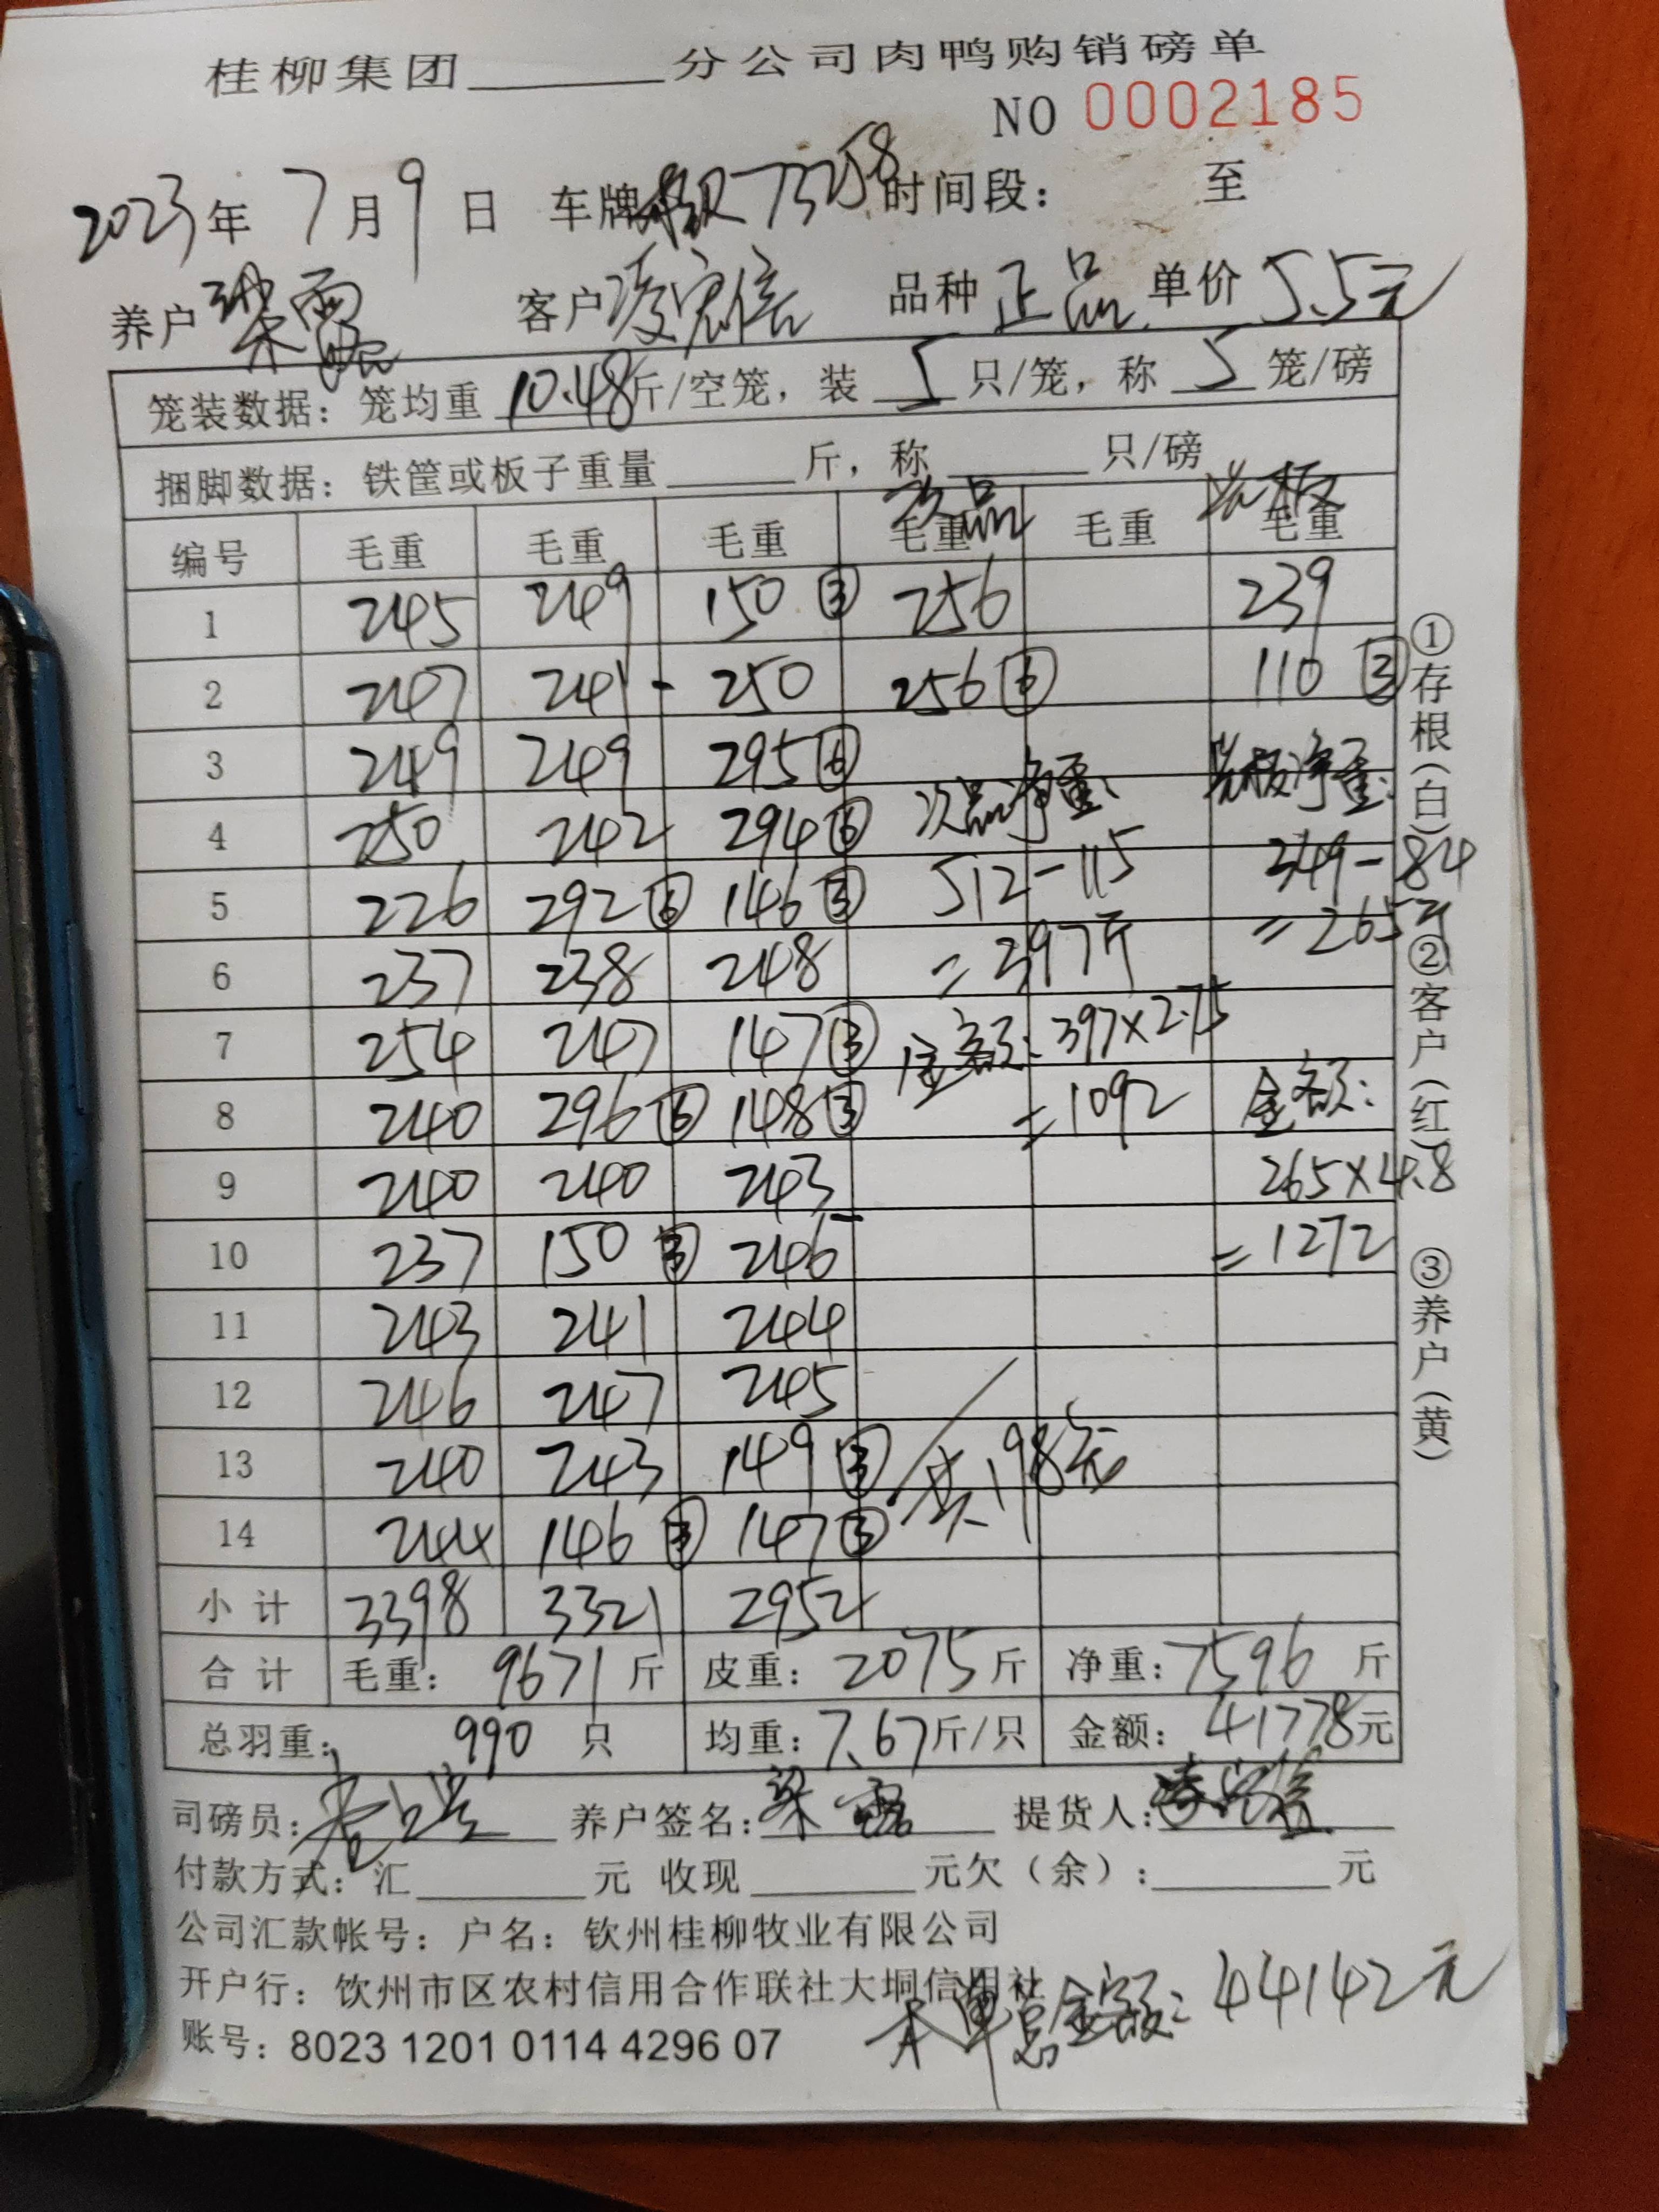 桂柳集团______分公司肉鸭购销磅单
NO 0002185
2023年 7月9日 车牌 73258 时间段： 至
养户 梁露 客户 凌宏信 品种 正品 单价 5.5元
笼装数据：笼均重 10.48斤/空笼，装 5 只/笼，称 5 笼/磅
捆脚数据：铁筐或板子重量______斤，称______只/磅
次品
编号 毛重 毛重 毛重 毛重 毛重 毛重
1 245 249 150③ 256 239
2 247 241 - 250 256⑥ 110③
3 249 249 295⑥ 次品净重： 净重：
4 250 242 294⑥ 512-115 349-84
5 226 292⑥ 146③ =397斤 =265斤
6 237 238 248
7 254 247 147③ 金额：397×2.75
8 240 296⑥ 148③ =1092 金额：
9 240 240 243 265×4.8
10 237 150③ 246 =1272
11 243 241 244
12 246 247 245
13 240 243 149③ 共198笼
14 244 146③ 147③
小计 3398 3321 2952
合计 毛重：9671斤 皮重：2075斤 净重：7596斤
总羽重：990只 均重：7.67斤/只 金额：41778元
司磅员： 养户签名：梁露 提货人：凌宏信
付款方式：汇______元 收现______元欠（余）：______元
公司汇款帐号：户名：钦州桂柳牧业有限公司
开户行：钦州市区农村信用合作联社大垌信用社
本单总金额：44142元
账号：8023 1201 0114 4296 07
①存根（白）②客户（红）③养户（黄）